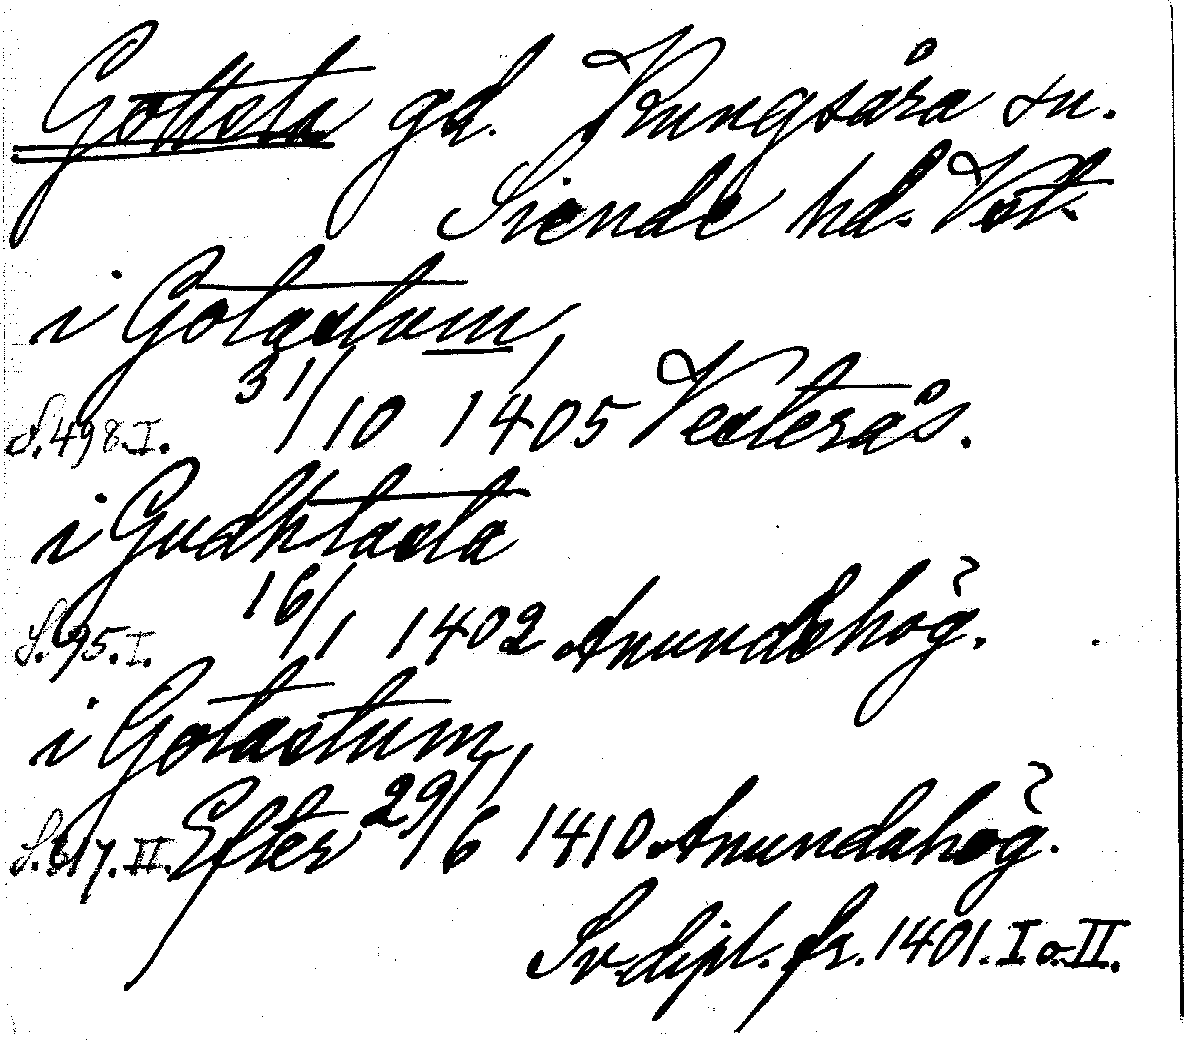 Gottsta gd. Kungsåra sn.
Siende hd. Vstm.
i Gotastum,
S. 498. I. 31/10 1405 Vesterås.
i Gudhstasta
S. 95. I. 16/1 1402 Anundshög.
i Gotastum,
S. 617. II. Efter 29/6 1410 Anundahög.
Sv. dipl. fr. 1401. I o. II.